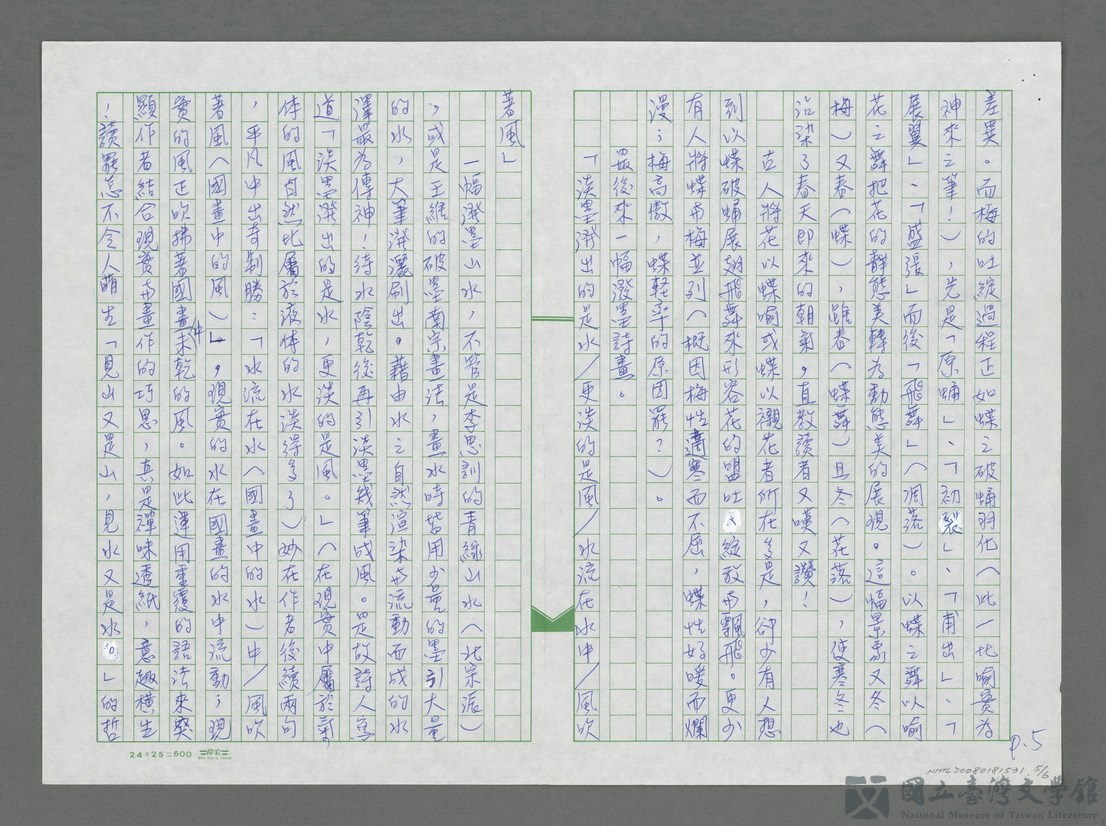 差異。而梅的吐綻過程正如蝶之破蛹羽化（此一比喻實為
神來之筆！），先是「原蛹」、「初裂」、「甫出」、「
展翼」、「盛張」而後「飛舞」（凋落）。以蝶之舞以喻
花之舞把花的靜態美轉為動態美的展現。這幅景象又冬（
梅）又春（蝶），雖春（蝶舞）且冬（花落），使寒冬也
沾染了春天即來的朝氣，直教讀者又嘆又讚！
古人將花以蝶喻或蝶以襯花者所在多是，卻少有人想
到以蝶破蛹展翅飛舞來形容花的盟吐綻放而飄飛。更少
有人將蝶與梅並列（概因梅性適寒而不屈，蝶性好暖而爛
漫；梅高傲，蝶輕率的原因罷？）。
最後來一幅潑墨詩畫。
「淡墨潑出的是水／更淡的是風／水流在水中／風吹
著風」
一幅潑墨山水，不管是李思訓的青綠山水（北宗派）
，或是王維的破墨南宗畫法，畫水時皆用少量的墨引大量
的水，大筆潑灑刷出。藉由水之自然渲染而流動而成的水
澤最為傳神！待水陰乾後再引淡墨幾筆成風。是故詩人寫
道「淡墨潑出的是水，更淡的是風。」（在現實中屬於氣
体的風自然比屬於液体的水淡得多了）妙在作者後續兩句
，平凡中出奇制勝：「水流在水（國畫中的水）中／風吹
著風（國畫中的風）」，現實的水在國畫的水中流動；現
實的風正吹拂著國畫中未乾的風。如此運用重覆的語法來突
顯作者結合現實與畫作的巧思，真是禪味透紙，意趣橫生
！讀罷怎不令人萌生「見山又是山，見水又是水」的哲
24×25=600
P.5
NMTL20080181591. 5/6
國立臺灣文學館
National Museum of Taiwan Literature